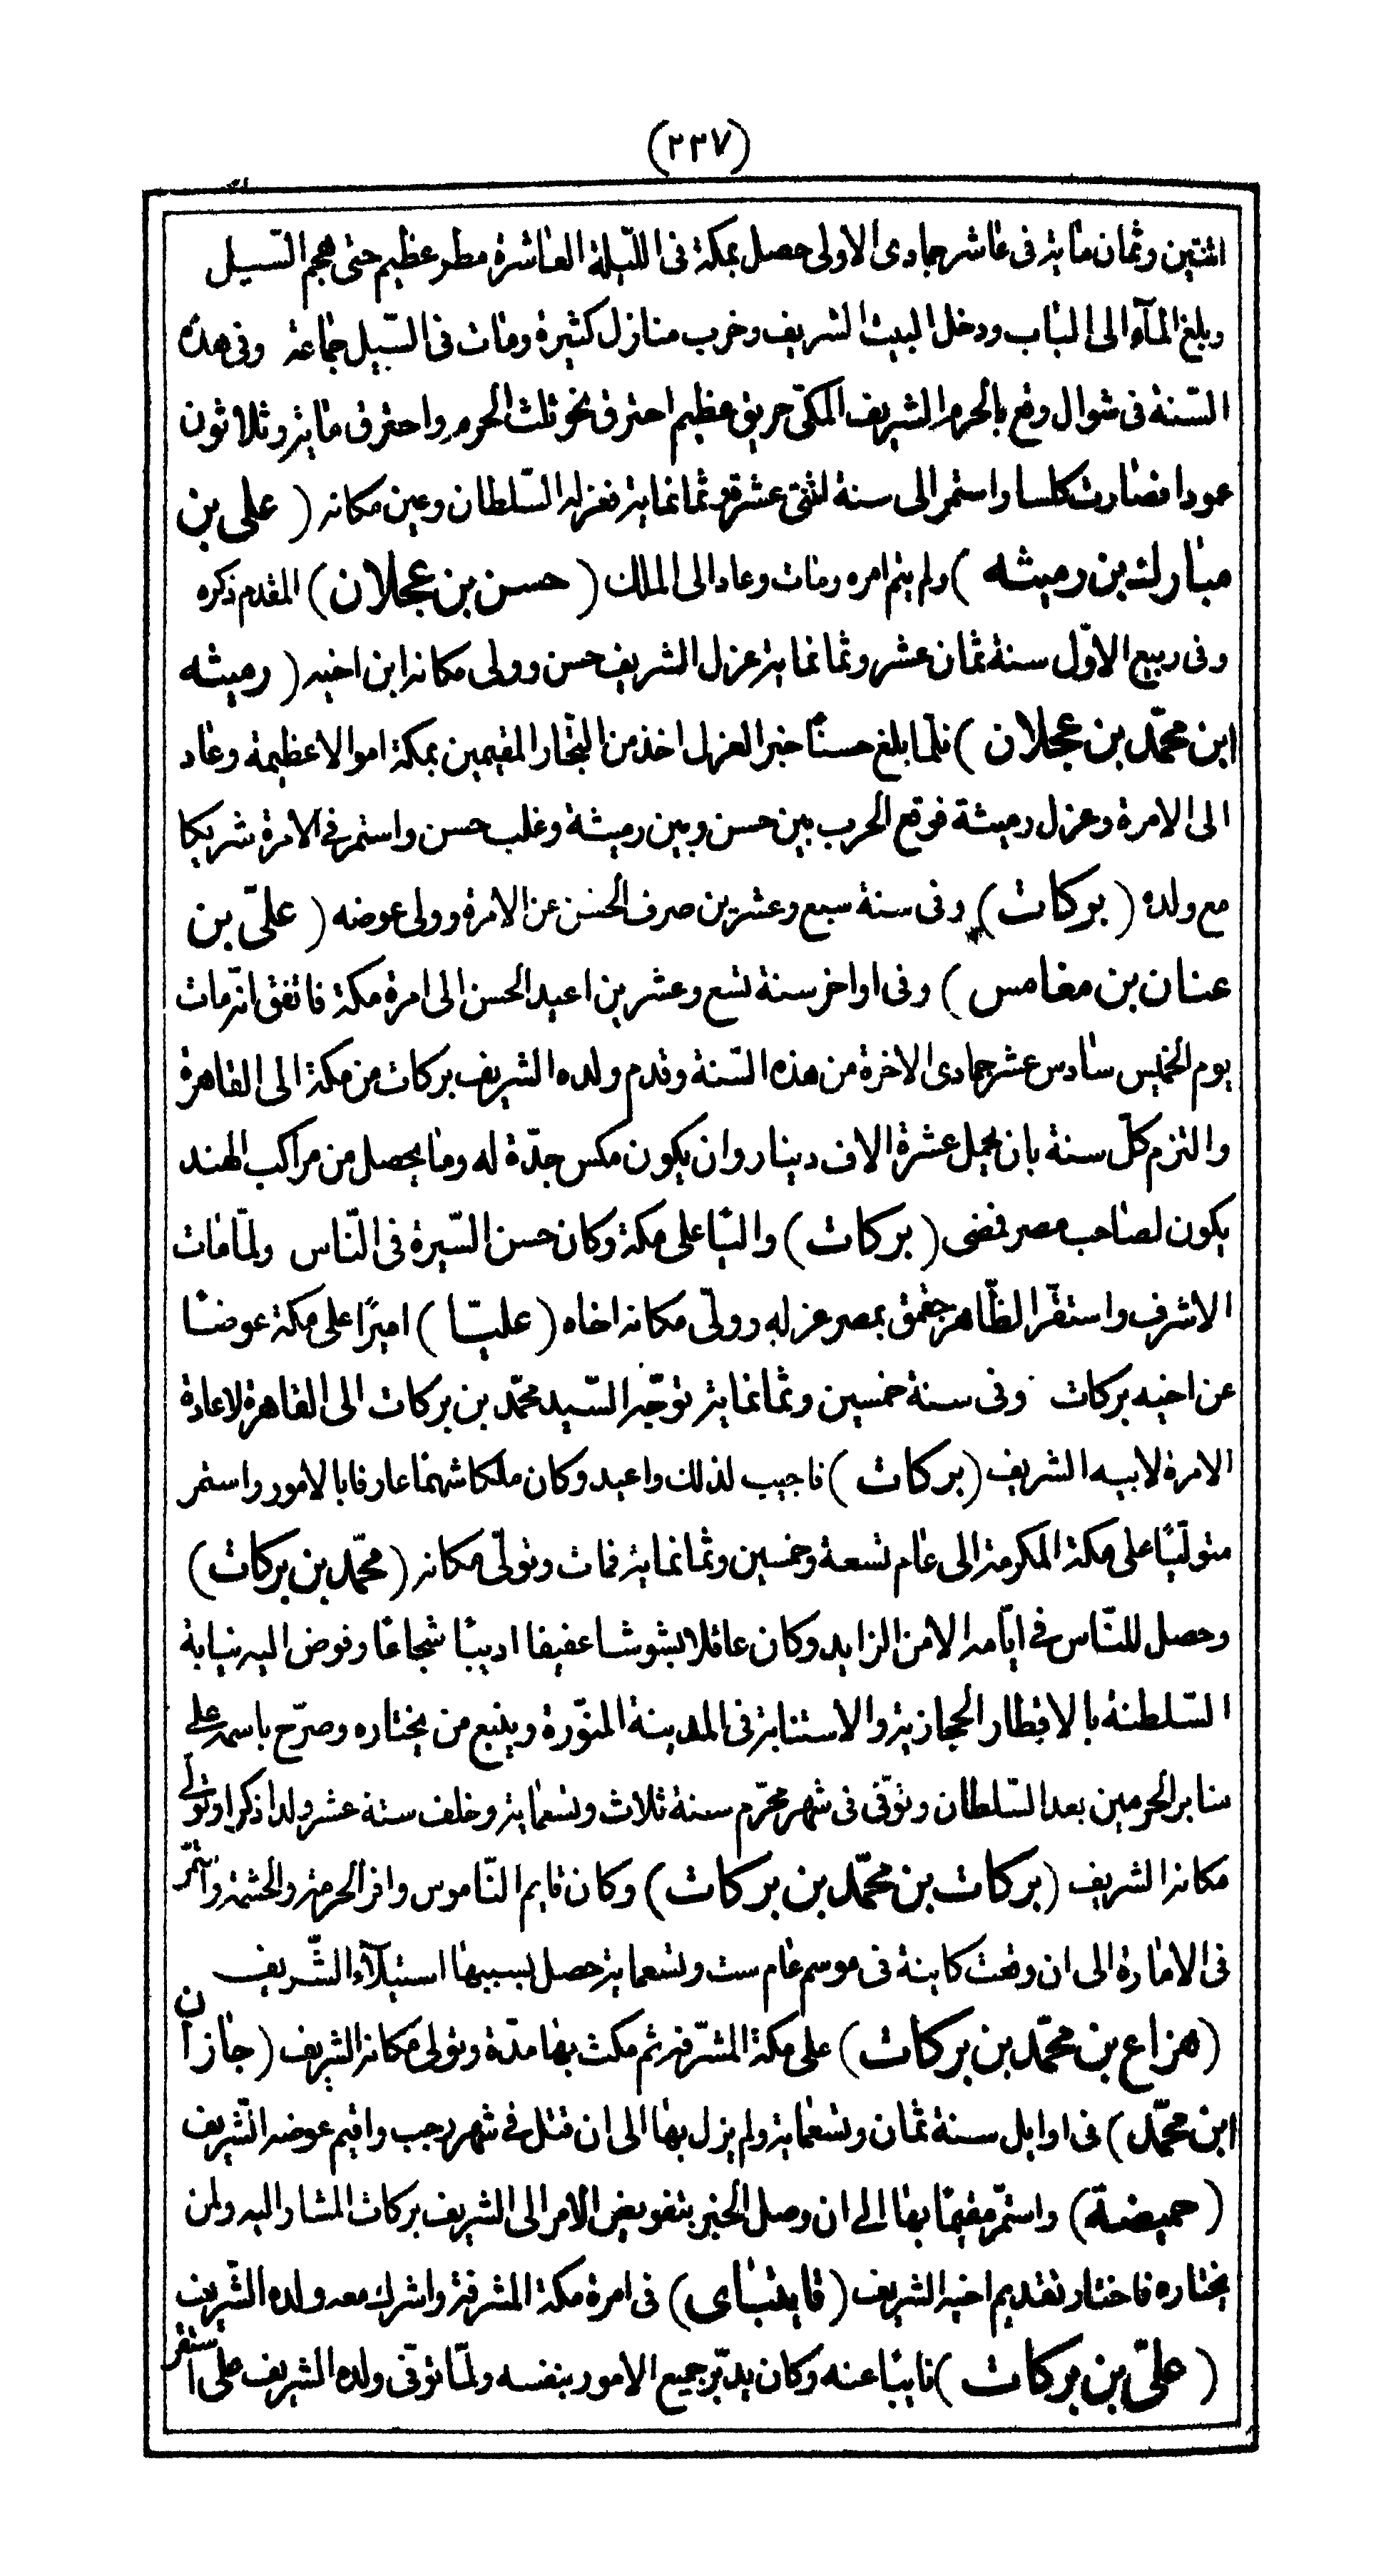 (٢٣٧)
اثنتين وثمان مایة فى عاشر جمادى الاولى حصل بمكة فى اللّيلة العاشرة مطر عظيم حتى هجم السّيل
وبلغ المآء الى الباب ودخل البيت الشريف وخرب منازل كثيرة ومات فى السّيل جماعة وفى هذه
السّنة فى شوال وقع بالحرم الشريف المكّى حريق عظيم احترق نحو ثلث الحرم واحترق مایة وثلاثون
عودا فصارت كلسا واستمر الى سنة اثنتى عشرة وثمانمایة فعزله السّلطان وعين مكانه ( على بن
مبارك بن رميثه ) ولم يتم امره ومات وعاد الى الملك ( حسن بن عجلان ) المقدم ذكره
وفى ربيع الاوّل سنة ثمان عشر وثمانمایة عزل الشريف حسن وولى مكانه ابن اخيه ( رميثه
ابن محمّد بن عجلان ) فلمّا بلغ حسنًا خبر العزل اخذ من التجّار المقيمين بمكة اموالا عظيمة وعاد
الى الامرة وعزل رميثة فوقع الحرب بين حسن وبين رميثة وغلب حسن واستمر فى الامرة شريكا
مع ولده ( بركات ) وفى سنة سبع وعشرين صرف الحسن عن الامرة وولى عوضه ( علىّ بن
عنان بن مغامس ) وفى اواخر سنة تسع وعشرين اعيد الحسن الى امرة مكة فاتفق انه مات
يوم الخميس سادس عشر جمادى الاخرة من هذه السّنة وقدم ولده الشريف بركات من مكة الى القاهرة
والتزم كلّ سنة بان يحمل عشرة الاف دينار وان يكون مكس جدّة له وما يحصل من مراكب الهند
يكون لصاحب مصر فمضى ( بركات ) واليًا على مكة وكان حسن السّيرة فى النّاس ولمّا مات
الاشرف واستقرّ الظّاهر جقمق بمصر عزله وولّى مكانه اخاه ( عليّا ) اميرًا على مكة عوضًا
عن اخيه بركات وفى سنة خمسين وثمانمایة توجّه السّيد محمّد بن بركات الى القاهرة لاعادة
الامرة لابيه الشريف ( بركات ) فاجيب لذلك واعيد وكان ملكا شهما عارفا بالامور واستمر
متولّيًا على مكة المكرمة الى عام تسعة وخمسين وثمانمایة فمات وتولّى مكانه ( محمّد بن بركات )
وحصل للنّاس فى ايّامه الامن الزايد وكان عاقلا بشوشا عفيفا اديبًا شجاعًا وفوض اليه نيابة
السّلطنة بالاقطار الحجازية والاستنابة فى المدينة المنوّرة وينبع من يختاره وصرّح باسمه على
منابر الحرمين بعد السّلطان وتوفّى فى شهر محرّم سنة ثلاث وتسعمایة وخلف ستة عشر ولدا ذكرا وتولى
مكانه الشريف ( بركات بن محمّد بن بركات ) وكان قايم النّاموس وافر الحرمة والحشمة واستمرّ
فى الامارة الى ان وقعت كاينة فى موسم عام ست وتسعمایة حصل بسببها استيلآء الشّريف
( هزاع بن محمّد بن بركات ) على مكة المشرّفة ثم مكث بها مدّة وتولى مكانه الشريف ( جازان
ابن محمّد ) فى اوايل سنة ثمان وتسعمایة ولم يزل بها الى ان قتل فى شهر رجب واقيم عوضه الشّريف
( حميضة ) واستمّر مقيمًا بها الى ان وصل الخبر بتفويض الامر الى الشريف بركات المشار اليه ولمن
يختاره فاختار تقديم اخيه الشريف ( قايتباى ) فى امرة مكة المشرفة واشرك معه ولده الشّريف
( علىّ بن بركات ) نايبًا عنه وكان يدبّر جميع الامور بنفسه ولمّا توفّى ولده الشريف على استقر